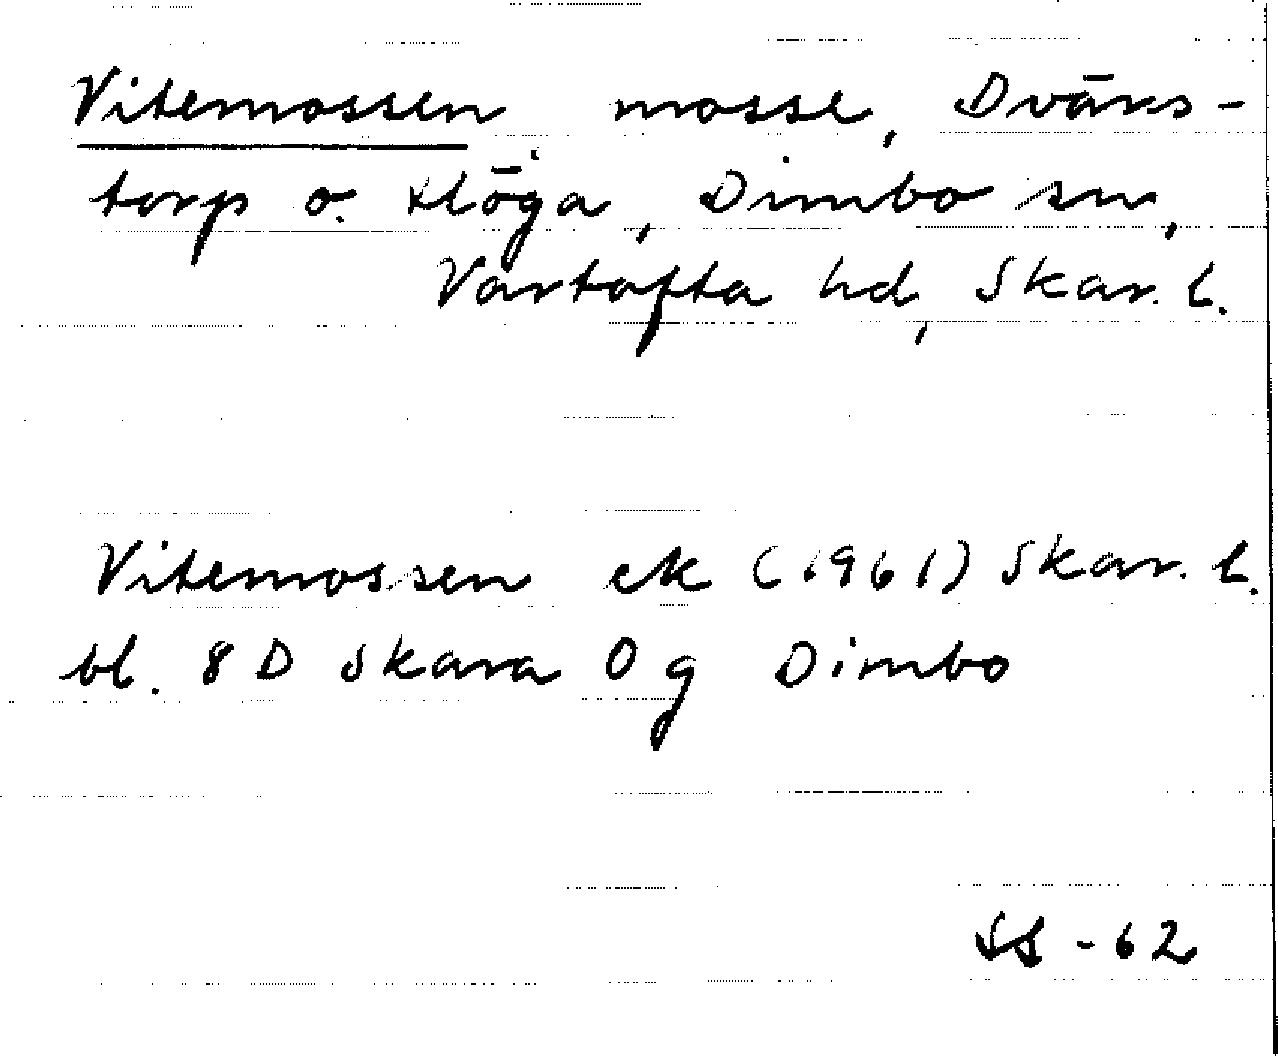 Vitemossen mosse, Dvärs-
torp o. Flöga, Dimbo sn,
Vartofta hd, Skar. l.
Vitemossen ek (1961) Skar. l.
bl. 8 D Skara 0 g Dimbo
SS - 62